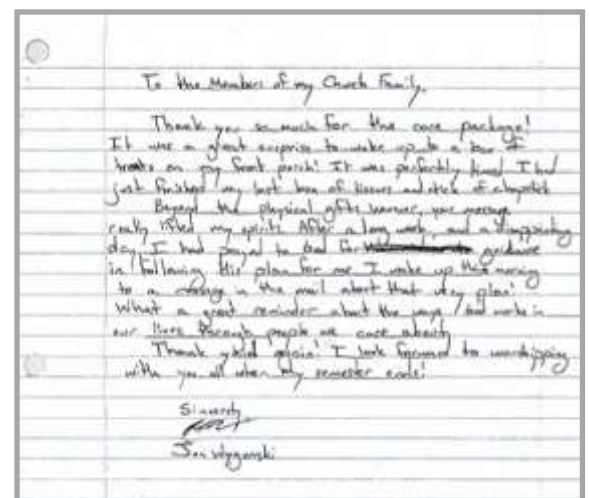 To the Members of my Church Family,
Thank you so much for the care package!
It was a great surprise to wake up to a box of
treats on my front porch! It was perfectly timed I had
just finished my last box of tissues and stick of chapstick
Beyond the physical gifts however, your message
really lifted my spirits. After a long week, and a disappointing
day, I had prayed to God for guidance
in following His plan for me I woke up this morning
to a message in the mail about that very plan!
What a great reminder about the ways God works in
our lives through people we care about.
Thank you again! I look forward to worshipping
with you all when my semester ends!
Sincerely